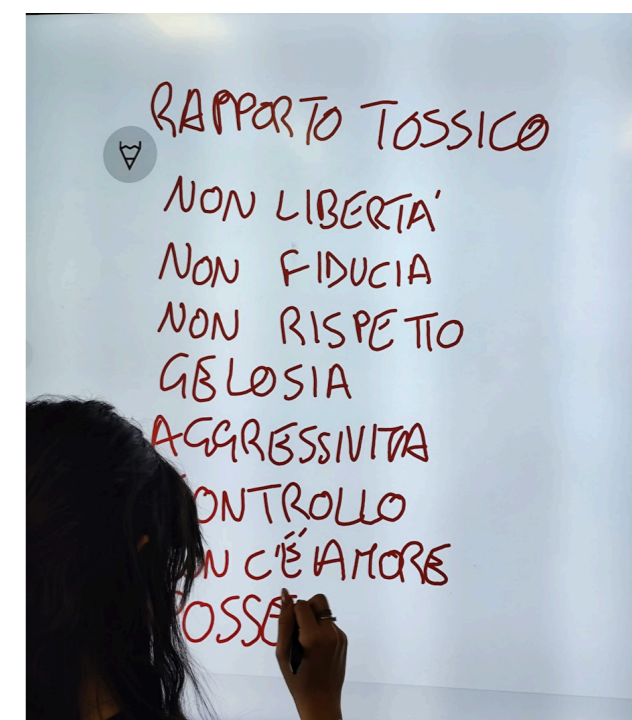 RAPPORTO TOSSICO
NON LIBERTA'
NON FIDUCIA
NON RISPETTO
GELOSIA
AGGRESSIVITA
ONTROLLO
N C'É AMORE
POSSE